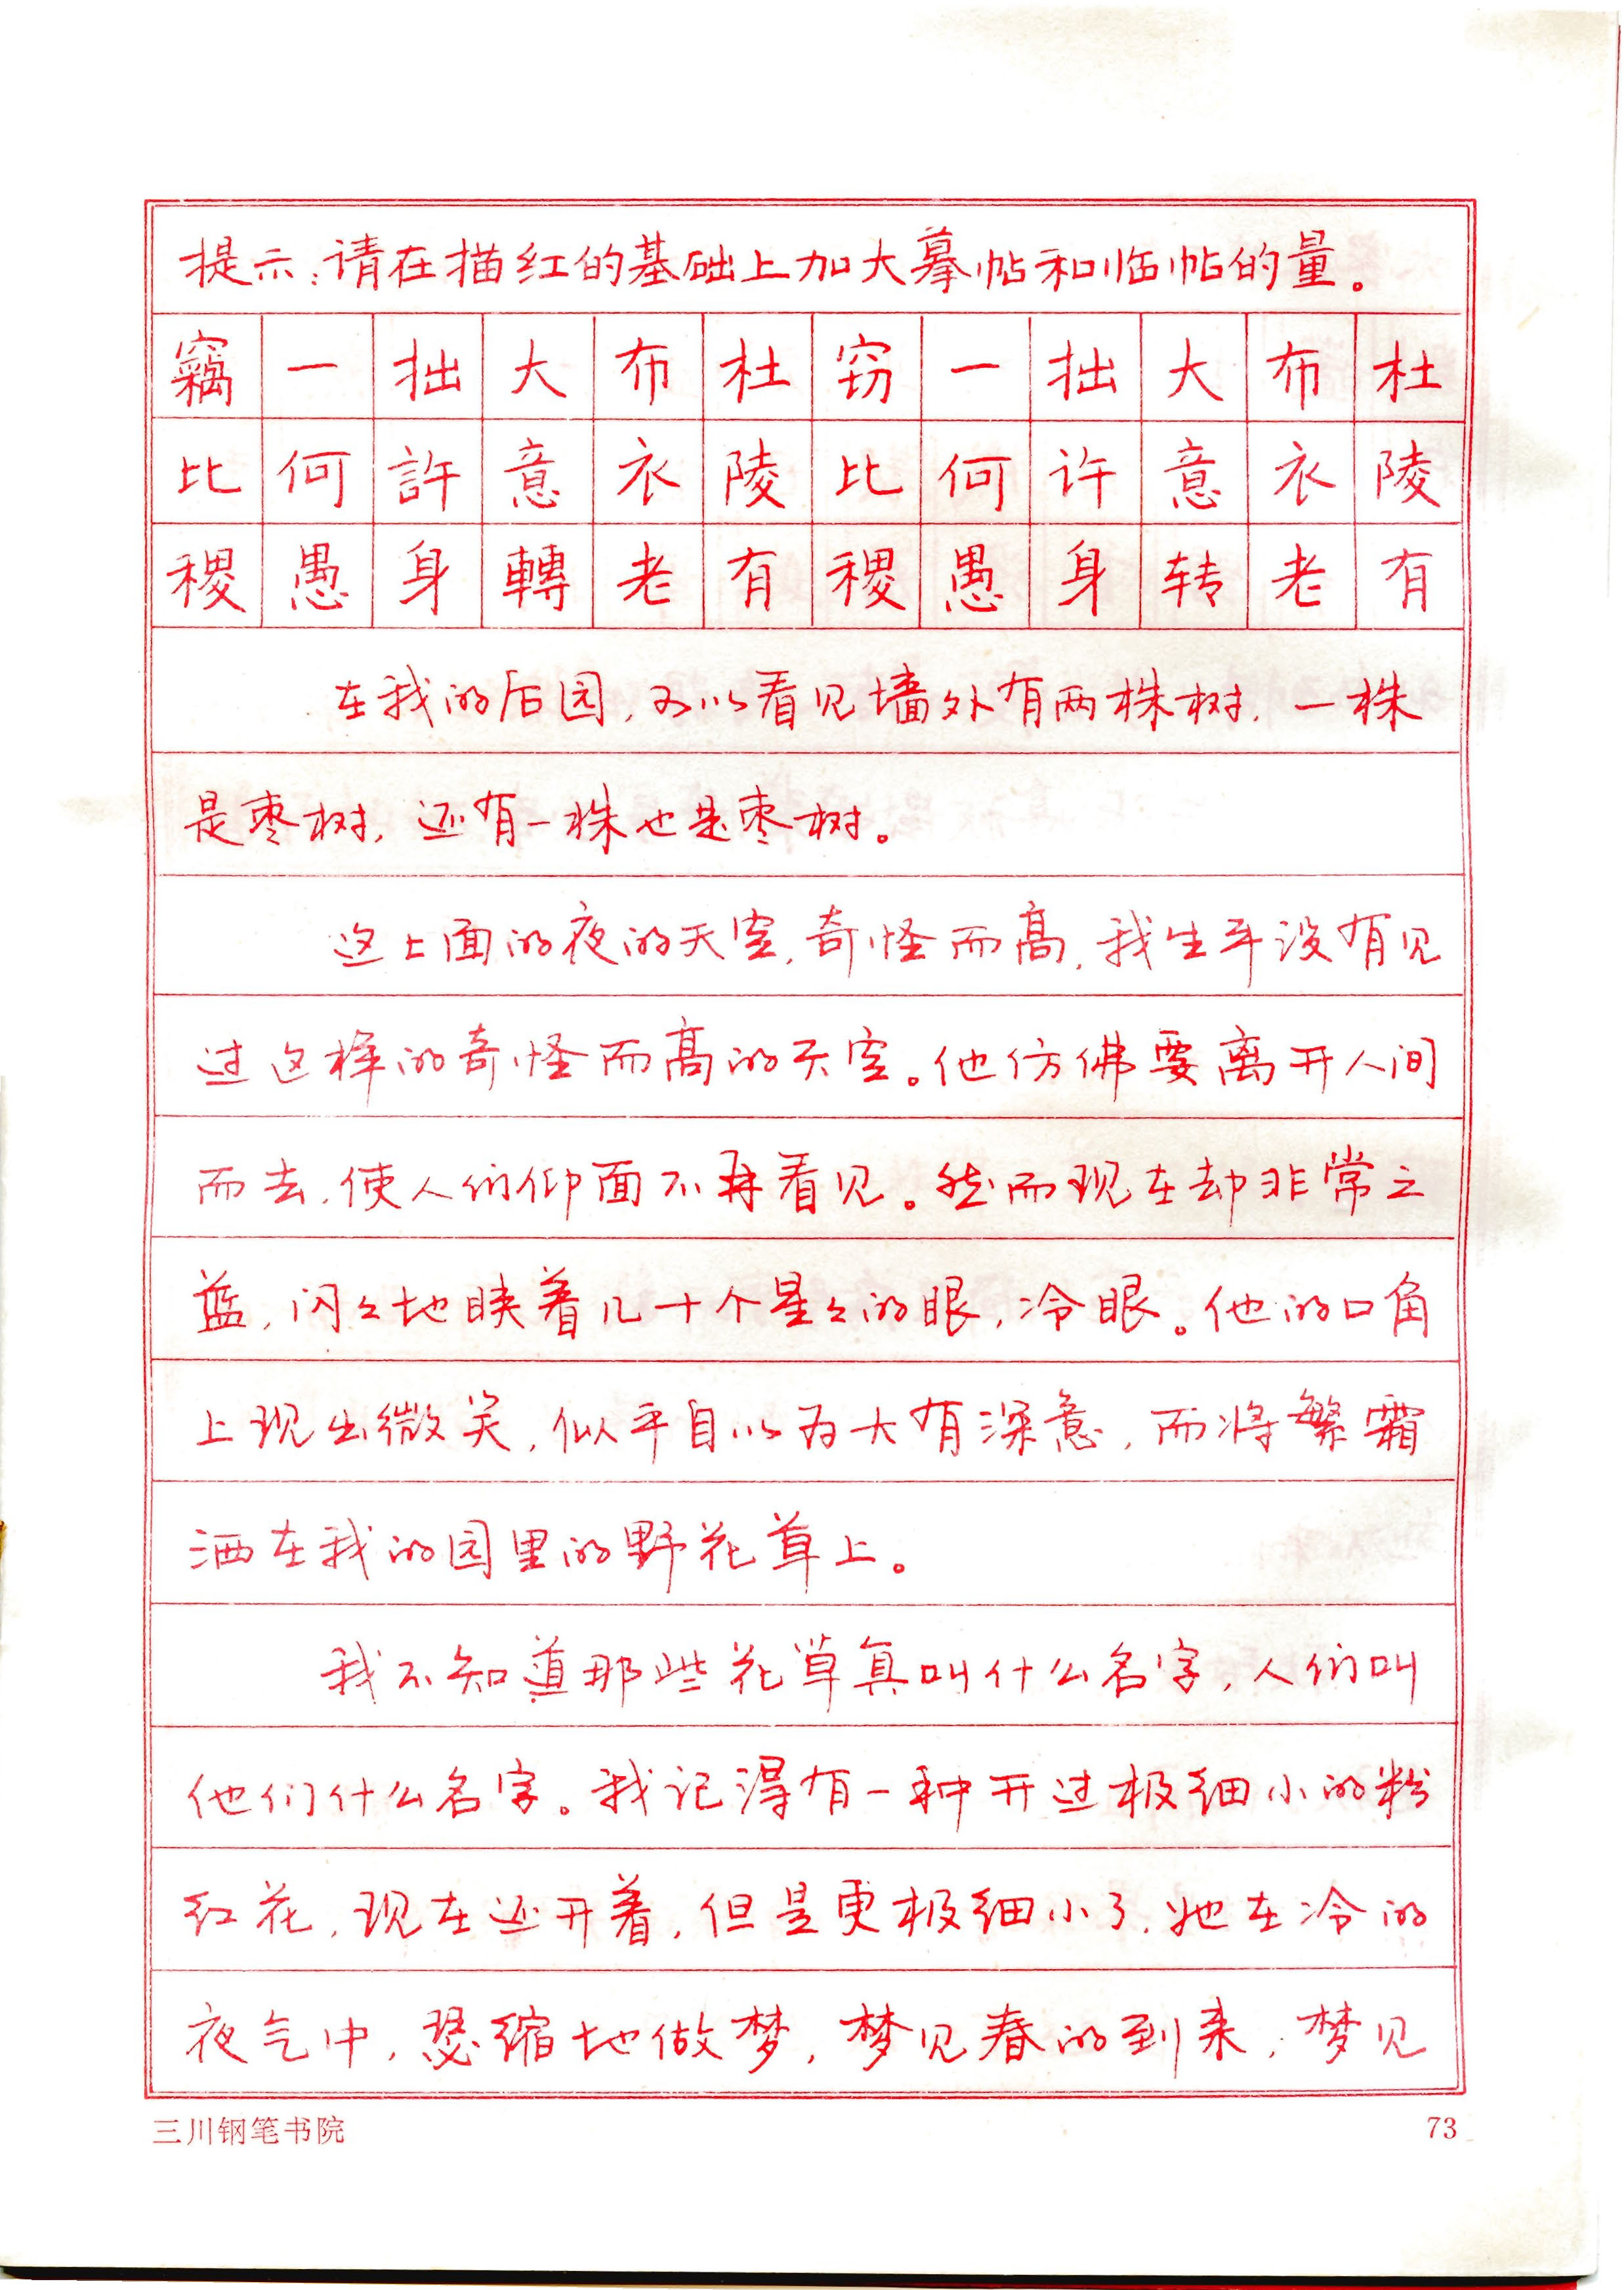 提示：请在描红的基础上加大摹帖和临帖的量。
杜陵有
布衣老
大意转
拙许身
一何愚
窃比稷
杜陵有
布衣老
大意轉
拙許身
一何愚
竊比稷
在我的后园，可以看见墙外有两株树，一株
是枣树，还有一株也是枣树。
这上面的夜的天空，奇怪而高，我生平没有见
过这样的奇怪而高的天空。他仿佛要离开人间
而去，使人们仰面不再看见。然而现在却非常之
蓝，闪々地䀹着几十个星々的眼，冷眼。他的口角
上现出微笑，似乎自以为大有深意，而将繁霜
洒在我的园里的野花草上。
我不知道那些花草真叫什么名字，人们叫
他们什么名字。我记得有一种开过极细小的粉
红花，现在还开着，但是更极细小了，她在冷的
夜气中，瑟缩地做梦，梦见春的到来，梦见
三川钢笔书院
73